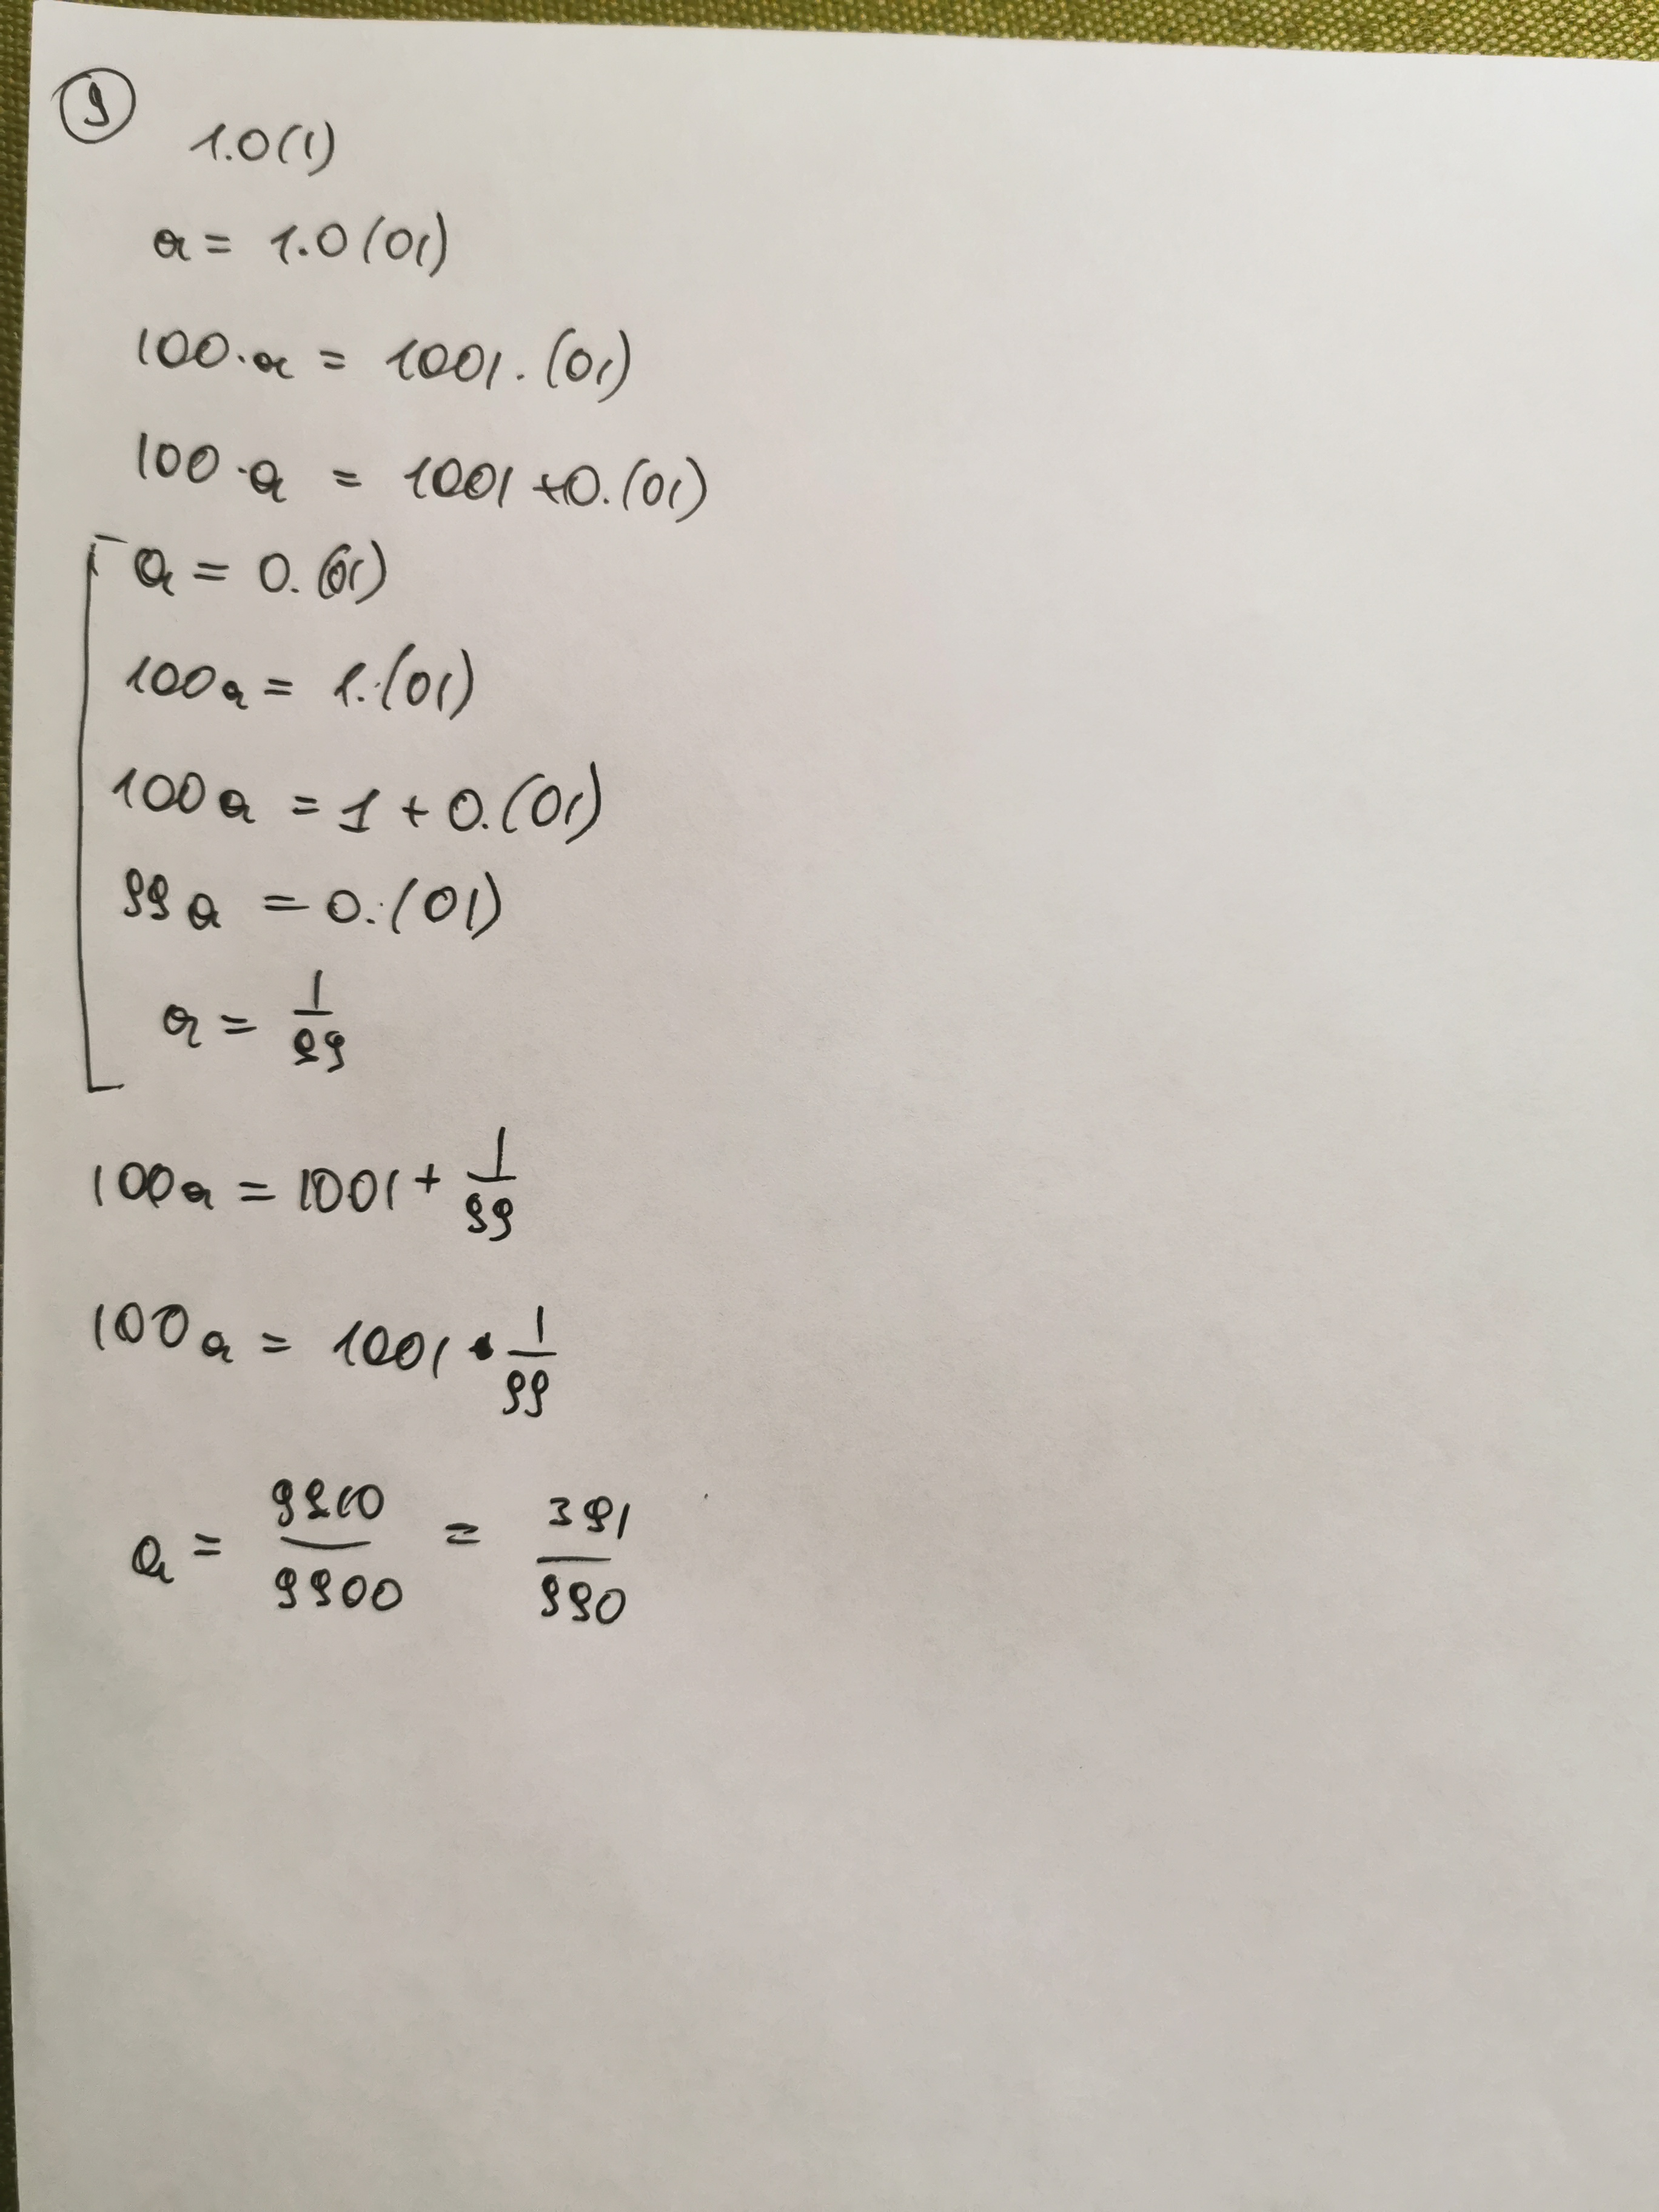 9
1.0(1)
a = 1.0(01)
100·a = 1001.(01)
100·a = 1001+0.(01)
a = 0.(01)
100a = 1.(01)
100a = 1 + 0.(01)
99a = 0.(01)
a = 1/99
100a = 1001 + 1/99
100a = 1001 · 1/99
a = 9910/9900 = 391/990